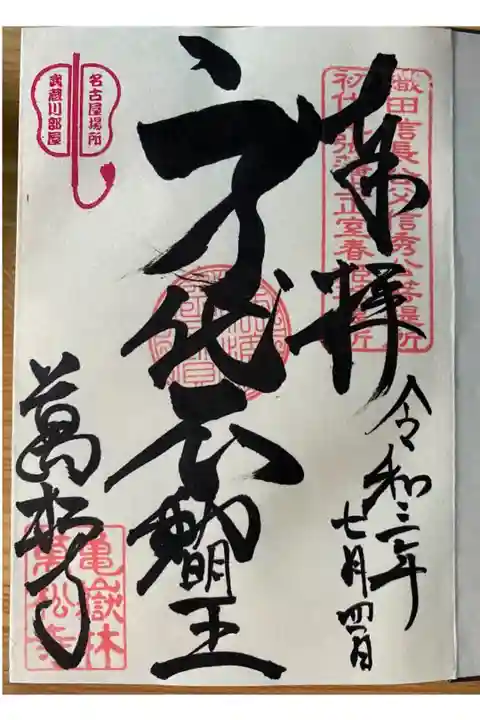 奉拝
令和三年
七月四日
織田信長公父信秀公菩提所
初代尾張藩主正室春姫菩提所
身代不動明王
萬松寺
亀嶽林
萬松寺
名古屋場所
武蔵川部屋